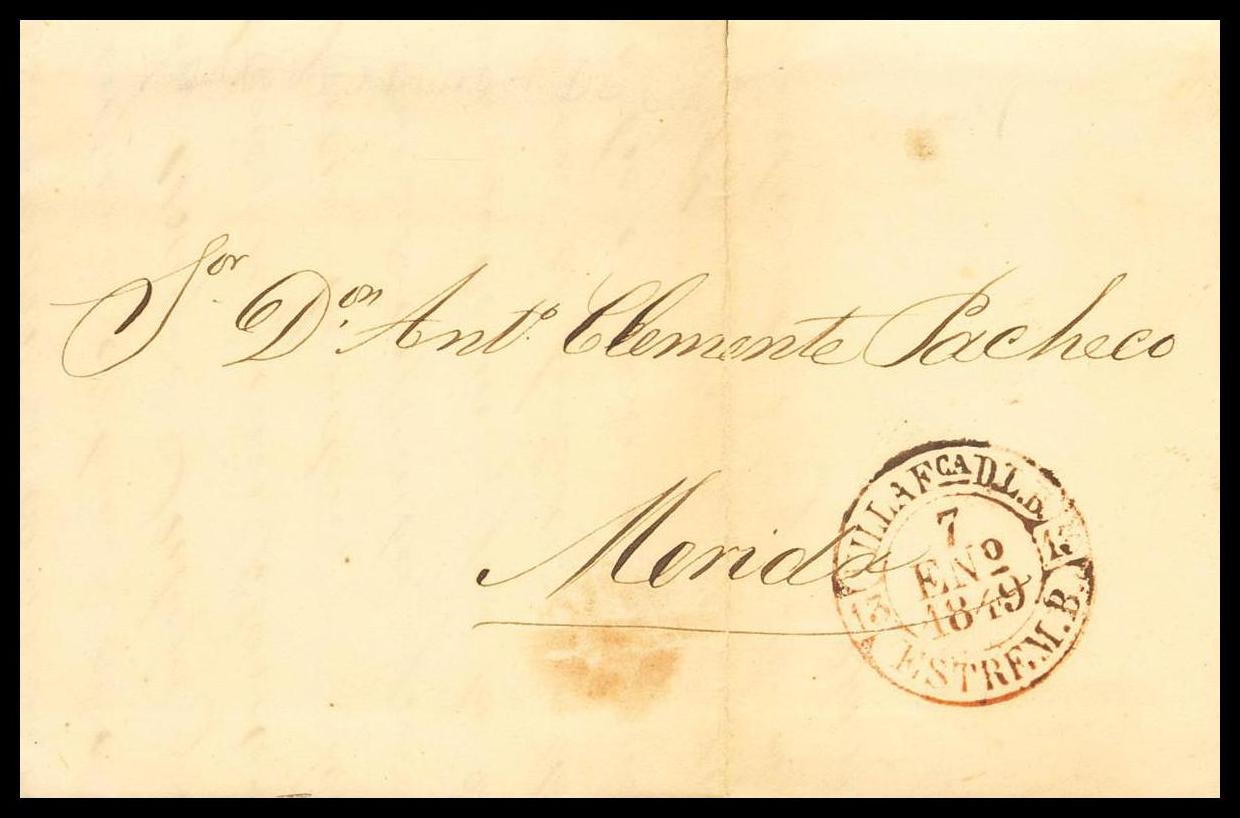 Sor. Don. Anto. Clemente Pacheco
Merida
VILLAFCA D.L.B.
7
ENO
1849
13 13
ESTREM.B.